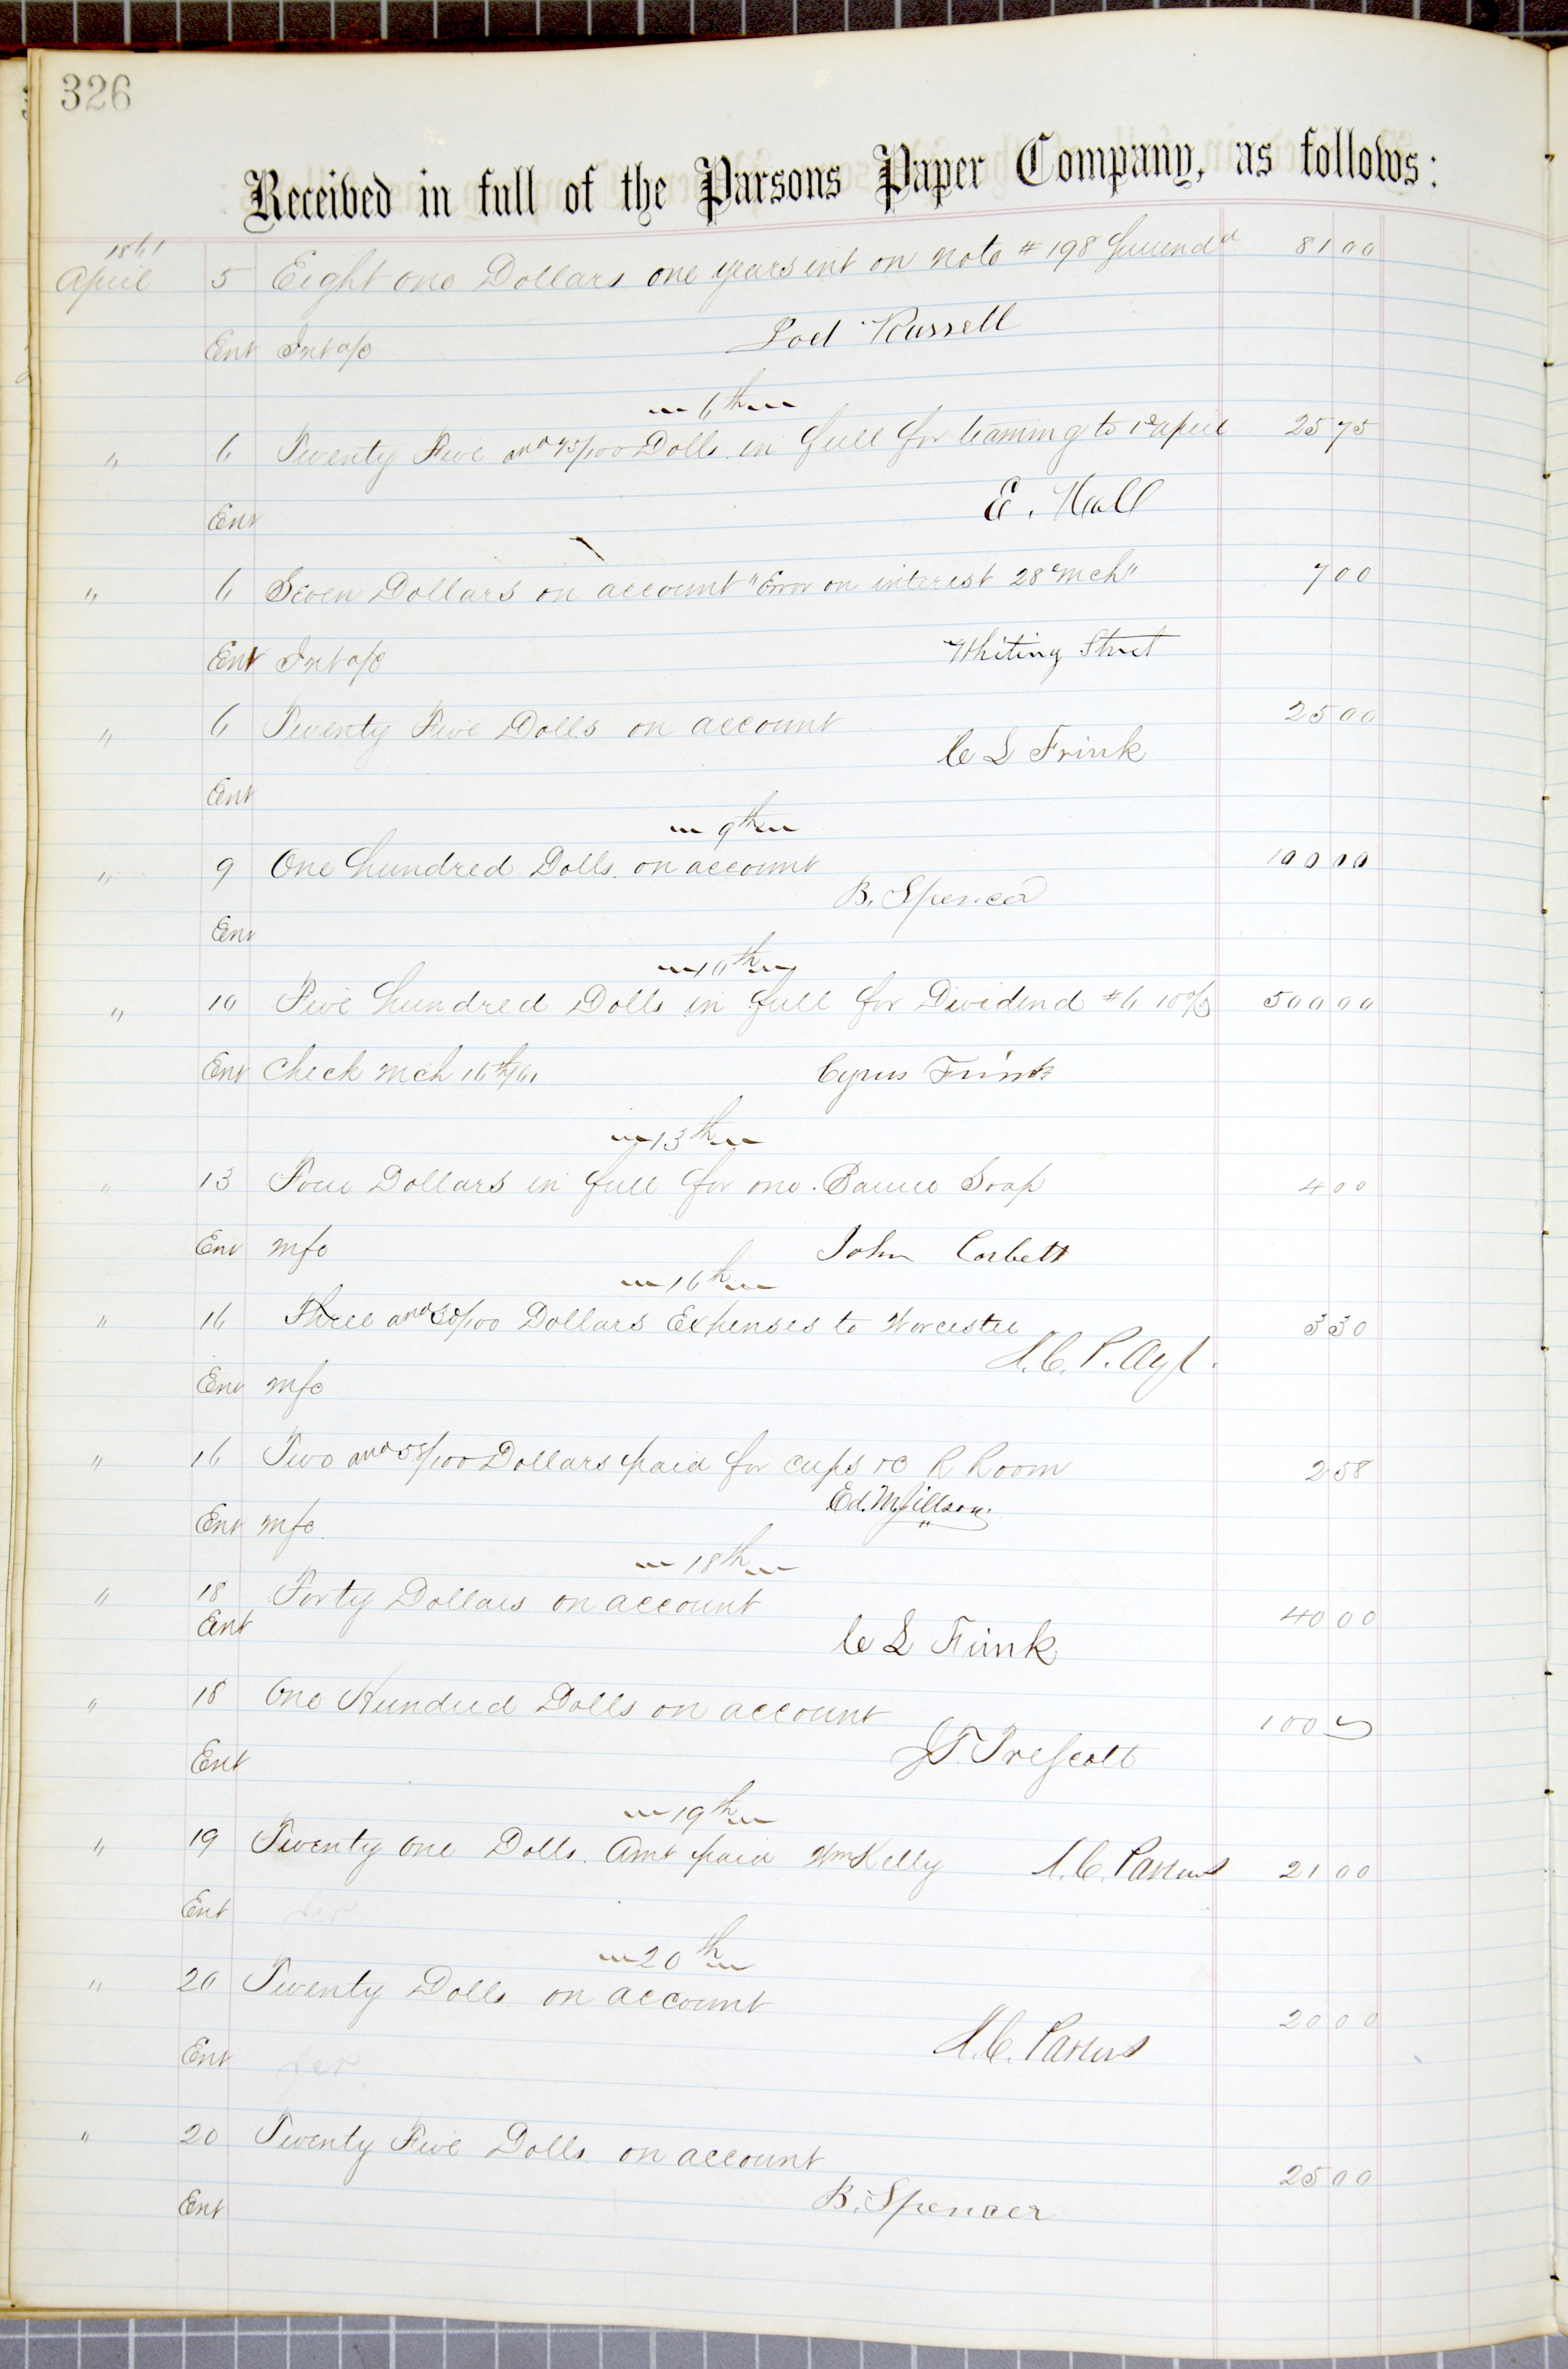 326
Received in full of the Parsons Paper Company, as follows:
1861
April 5 Eight one Dollars one years int on note # 198 81 00
Ent Int a/c Joel Russell
6th
" 6 Twenty Five and 75/100 Dolls. in full for teaming to 1st April 25 75
Ent E. Hall
" 6 Seven Dollars on account "Error on interest 28th Mch" 7 00
Ent Int a/c Whiting Street
" 6 Twenty Five Dolls on account 25 00
C L Frink
Ent
9th
" 9 One hundred Dolls. on account 100 00
B. Spencer
Ent
10th
" 10 Five hundred Dolls in full for Dividend #6 10% 500 00
Ent Check Mch 16th/61 Cyrus Frink
13th
" 13 Four Dollars in full for one Soap 4 00
Ent Mfc John Corbett
16th
" 16 Three and 30/100 Dollars Expenses to Worcester 3 30
J. C. P. Agt.
Ent Mfc
" 16 Two and 58/100 Dollars paid for cups &c R Room 2 58
Ed. M.
Ent Mfc.
18th
" 18 Forty Dollars on account 40 00
Ent C L Frink
" 18 One Hundred Dolls on account 100
J T. Prescott
Ent
19th
" 19 Twenty One Dolls. Amt paid Wm Kelly J. C. Parsons 21 00
Ent
20th
" 20 Twenty Dolls on account 20 00
J. C. Parsons
Ent
" 20 Twenty Five Dolls on account 25 00
B. Spencer
Ent